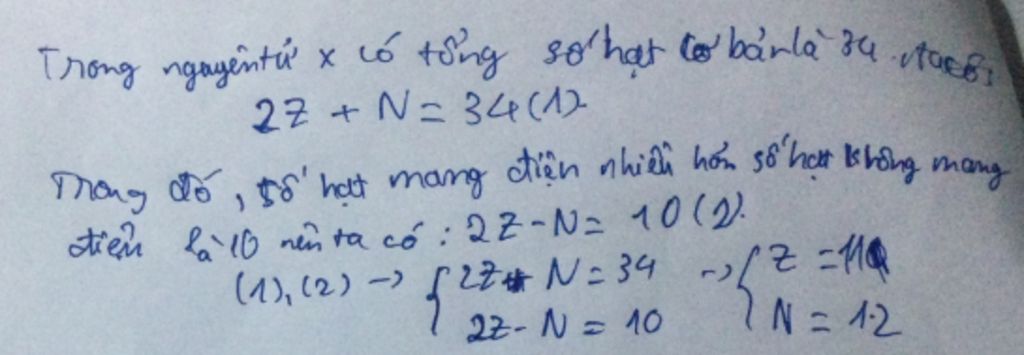 Trong nguyên tử x có tổng số hạt cơ bản là 34. ta có:
2Z + N = 34 (1).
Trong đó, số hạt mang điện nhiều hơn số hạt không mang
điện là 10 nên ta có: 2Z - N = 10 (2).
(1), (2) → { 2Z + N = 34 → { Z = 11
2Z - N = 10 N = 12